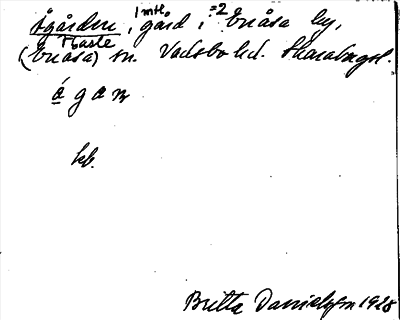 Ågården, 1 mtl. gård i =2 Enåsa by,
(Enåsa) Hasle sn. Vadsbo hd. Skaraborgsl.
å g a n
kb.
Britta Danielsson 1928